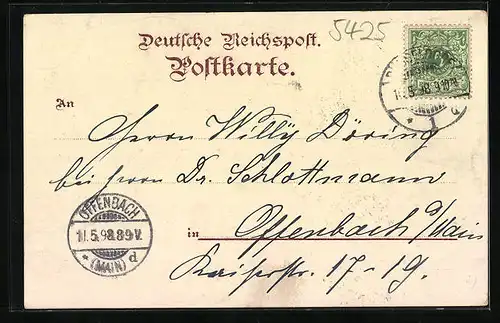 5425
Deutsche Reichspost.
Postkarte.
An
Herrn Willy Döring
bei Herrn Dr. Schlottmann
in Offenbach a/Main
Kaiserstr. 17-19.
OFFENBACH
11.5.98.8-9V.
* (MAIN) d